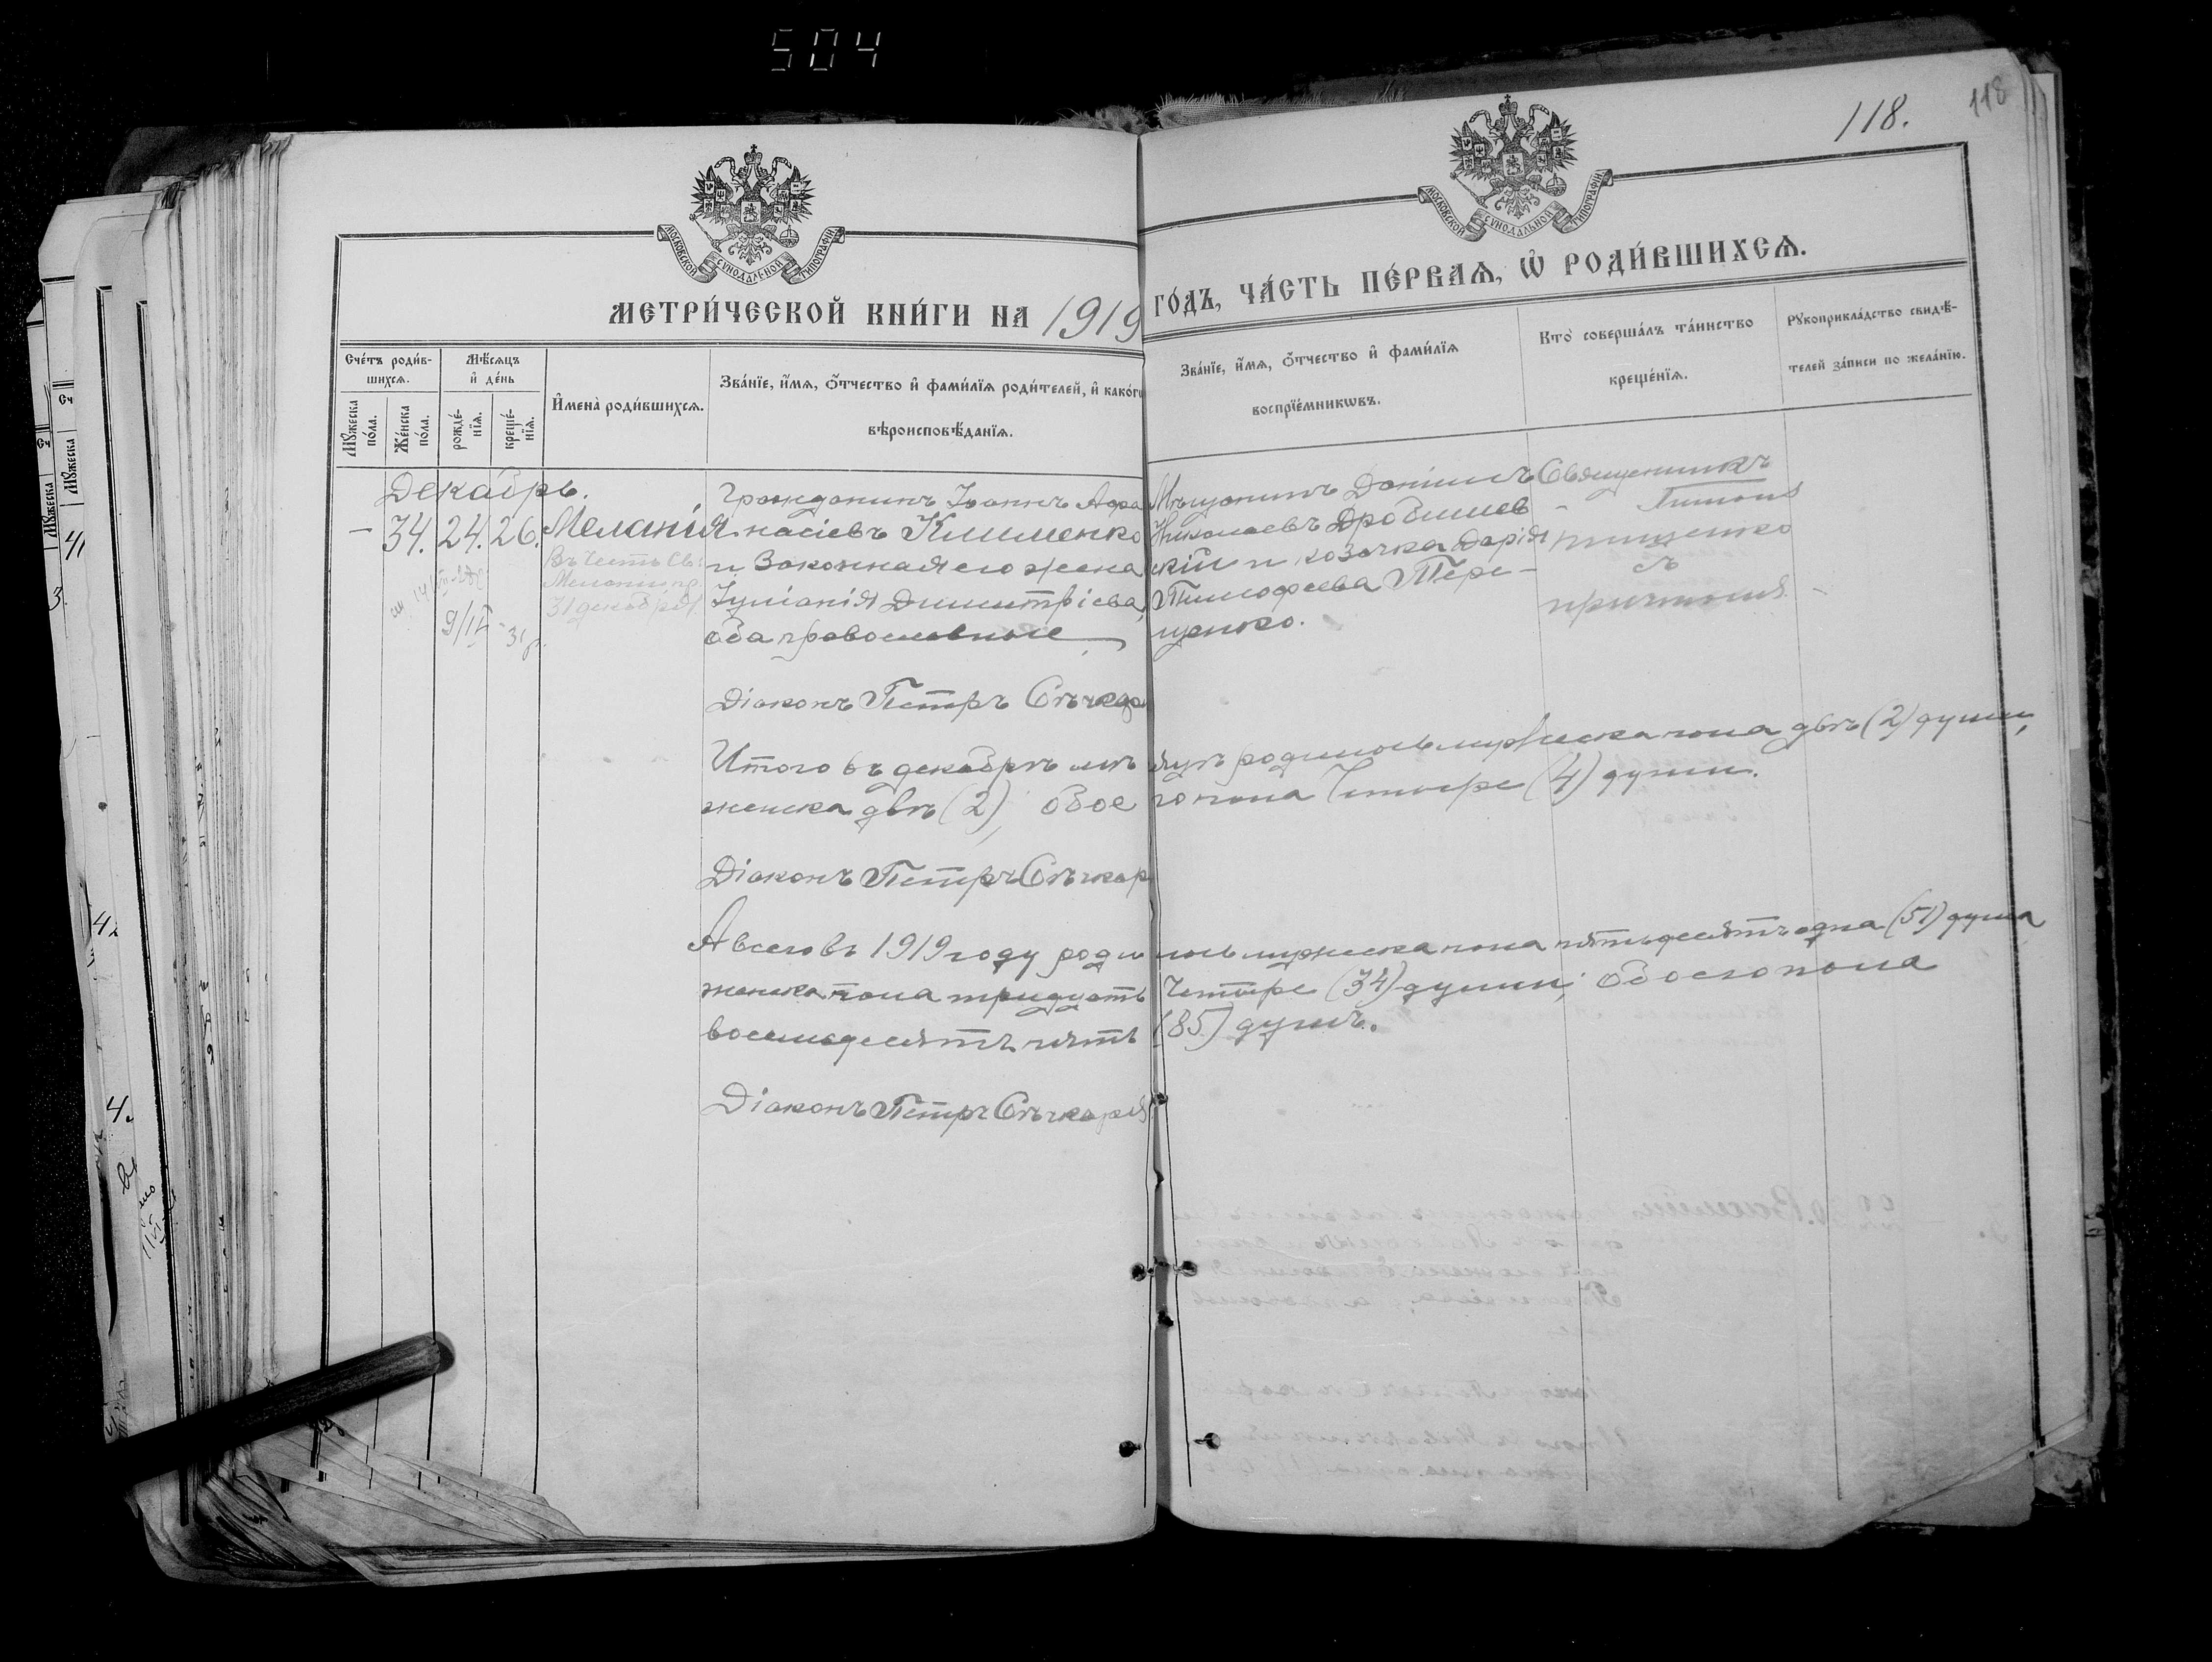 504
118.
118
МОСКОВСКОЙ СУНОДАЛЬНОЙ ТИПОГРАФІИ
МОСКОВСКОЙ СУНОДАЛЬНОЙ ТИПОГРАФІИ
МЕТРИ́ЧЕСКОЙ КНИ́ГИ НА 1919 ГО́ДЪ, ЧА́СТЬ ПЕ́РВАѦ, Ѡ҆ РОДИ́ВШИХСѦ.
Сче́тъ роди́в-
шихсѧ.
Мꙋ́жеска по́ла.
Же́нска по́ла.
Мѣ́сѧцъ
и҆ де́нь
рожде́-
нїѧ.
креще́-
нїѧ.
И҆мена̀ роди́вшихсѧ.
Зва́нїе, и҆́мѧ, ѻ҆́тчество и҆ фами́лїѧ роди́телей, и҆ како́гѡ
вѣроисповѣ́данїѧ.
Зва́нїе, и҆́мѧ, ѻ҆́тчество и҆ фами́лїѧ
воспрїе́мникѡвъ.
Кто̀ соверша́лъ та́инство
креще́нїѧ.
Рꙋкоприкла́дство свидѣ́-
телей за́писи по жела́нїю.
Декабрь.
- 34. 24. 26. Меланія
Въ честь Св:
Мелании пр.
31 декабря
9/IV
Гражданинъ Іоаннъ Афа
насіевъ Клименко
и законная его жена
Іуліанія Димитріева,
оба православные
Мѣщанинъ Даніилъ
Николаевъ Дробишев
скій и козачка Дарія
Тимофеева Тере-
щенко.
Священникъ
съ
причтомъ.
Діаконъ Петръ Сѣчкарь
Итого въ декабрѣ мѣсяцѣ родилось мужеска пола двѣ (2) души,
женска двѣ (2), обоего пола четыре (4) души.
Діаконъ Петръ Сѣчкар
А всего въ 1919 году родилось мужеска пола пятьдесятъ одна (51) душа
женска пола тридцать четыре (34) души; обоего пола
восемьдесятъ пять (85) душъ.
Діаконъ Петръ Сѣчкарь